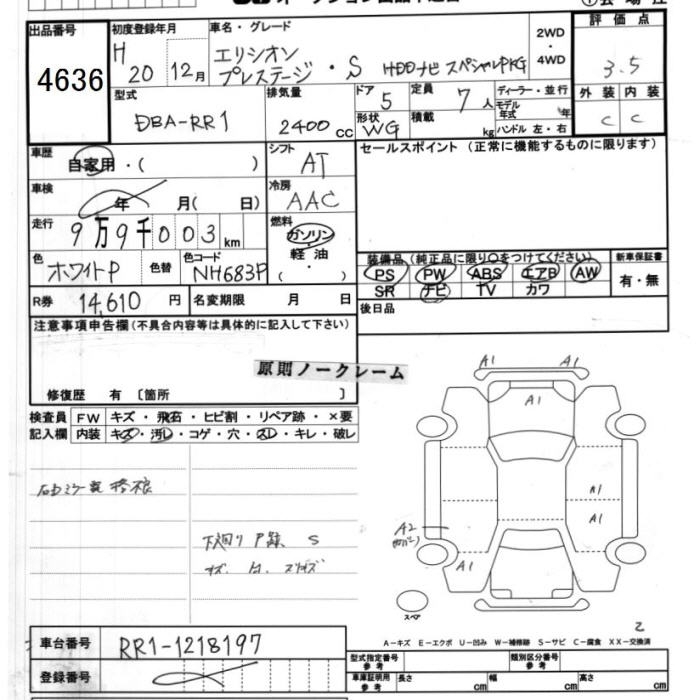 出品番号
4636
初度登録年月
H 20 12月
車名・グレード
エリシオン
プレステージ・S HDDナビ スペシャルPKG
2WD
・
4WD
評価点
3.5
外装 内装
C C
型式
DBA-RR1
排気量
2400 cc
ドア 5
形状 WG
定員 7人
積載 kg
ディーラー・並行
モデル年式 年
ハンドル 左・右
車歴
自家用・( )
シフト
AT
セールスポイント (正常に機能するものに限ります)
車検
年 月( 日)
冷房
AAC
走行
9万9千003km
燃料
ガソリン
・
軽油
・
色
ホワイトP
色替
色コード
NH683P
装備品(純正品に限り○をつけてください)
PS PW ABS エアB AW
SR ナビ TV カワ
新車保証書
有・無
R券 14,610円
名変期限 月 日
後日品
注意事項申告欄(不具合内容等は具体的に記入して下さい)
原則ノークレーム
修復歴 有 〔箇所 〕
検査員
記入欄
FW キズ・飛石・ヒビ割・リペア跡・×要
内装 キズ・汚レ・コゲ・穴・スレ・キレ・破レ
下廻り
S
A1 A1
A1
A1
A1
A2
A1
スペア
2
A-キズ E-エクボ U-凹み W-補修跡 S-サビ C-腐食 XX-交換済
車台番号
RR1-1218197
登録番号
型式指定番号
参考
類別区分番号
参考
車庫証明用
参考
長さ cm
幅 cm
高さ cm